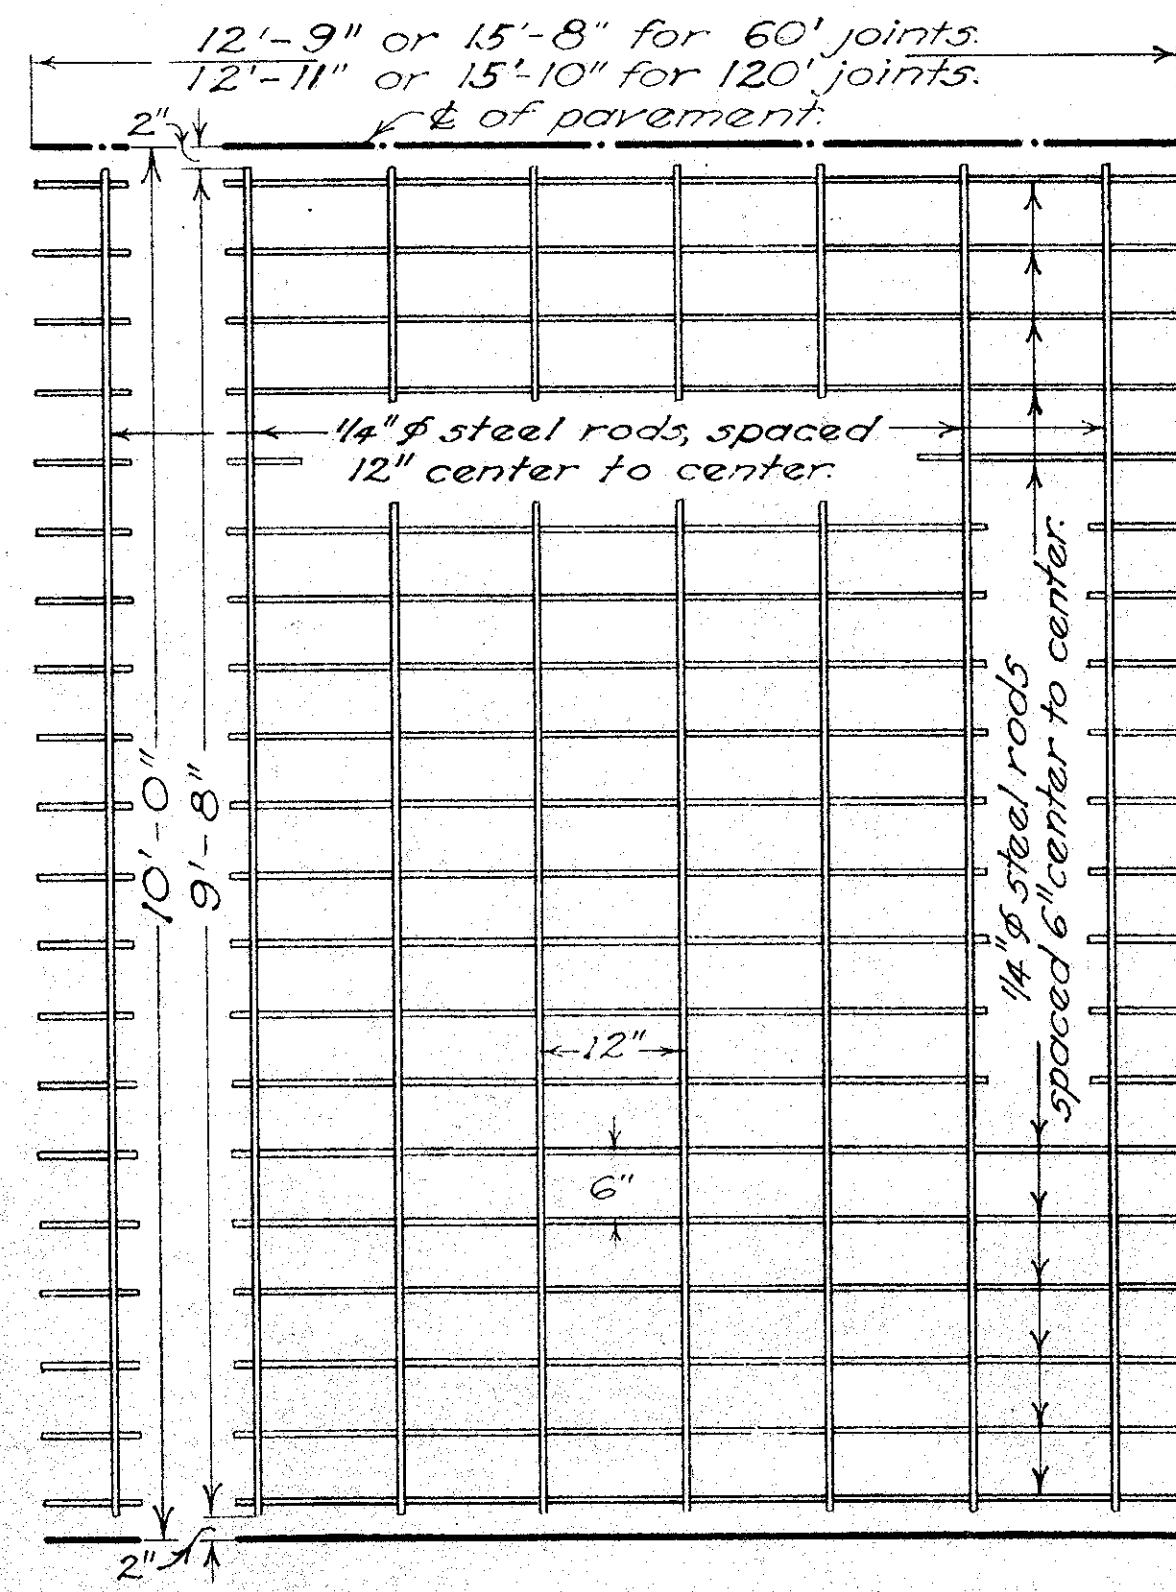 12'-9" or 15'-8" for 60' joints.
12'-11" or 15'-10" for 120' joints.
2"
℄ of pavement.
1/4"ϕ steel rods, spaced
12" center to center.
10'-0"
9'-8"
1/4"ϕ steel rods
spaced 6" center to center.
12"
6"
2"